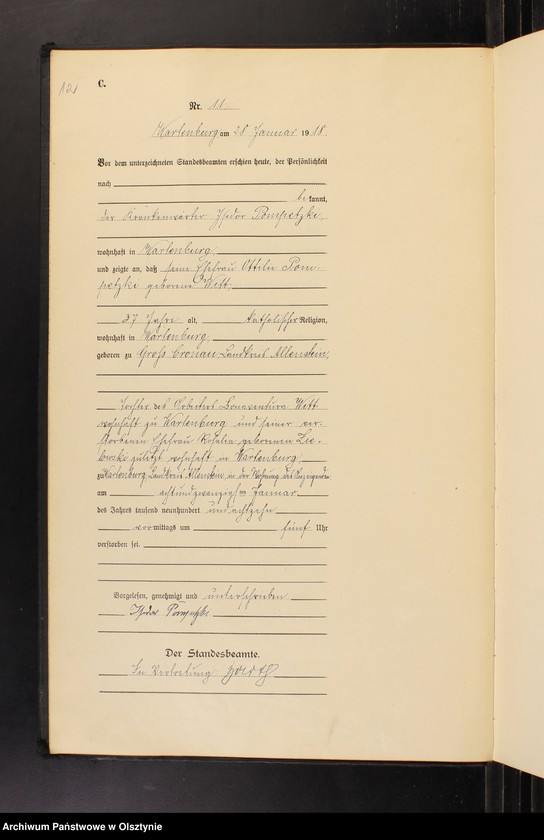 121
C.
Nr. 11
Wartenburg am 28 Januar 1918.
Vor dem unterzeichneten Standesbeamten erschien heute, der Persönlichkeit
nach
bekannt,
der Krankenwärter Isidor Pompetzki,
wohnhaft in Wartenburg,
und zeigte an, daß seine Ehefrau Ottilie Pom-
petzki geborene Witt,
37 Jahre alt, katholischer Religion,
wohnhaft in Wartenburg,
geboren zu Groß Cronau Landkreis Allenstein,
Tochter des Arbeiters Bonaventura Witt
wohnhaft zu Wartenburg und seiner ver-
storbenen Ehefrau Rosalia geborenen
zuletzt wohnhaft in Wartenburg
zu Wartenburg Landkreis Allenstein, in der Wohnung des Anzeigenden
am achtundzwanzigsten Januar
des Jahres tausend neunhundert und achtzehn
vormittags um fünf Uhr
verstorben sei.
Vorgelesen, genehmigt und unterschrieben
Isidor Pompetzki
Der Standesbeamte.
In Vertretung
Archiwum Państwowe w Olsztynie